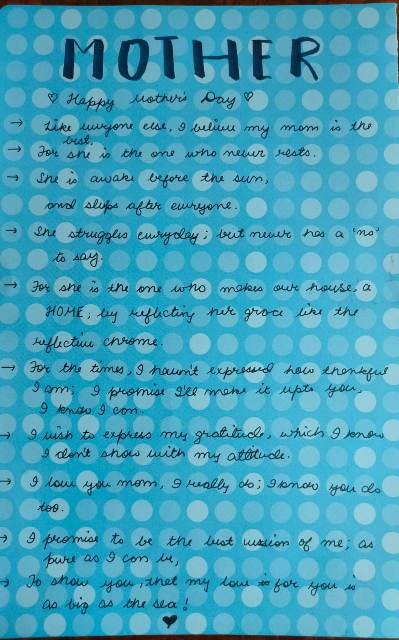 MOTHER
♡ Happy Mother's Day ♡
→ Like everyone else, I believe my mom is the
best.
→ For she is the one who never rests.
→ She is awake before the sun,
and sleeps after everyone.
→ She struggles everyday; but never has a 'no'
to say.
→ For she is the one who makes our house, a
HOME; by reflecting her grace like the
reflective chrome.
→ For the times, I haven't expressed how thankful
I am; I promise I'll make it upto you,
I know I can.
→ I wish to express my gratitude, which I know
I don't show with my attitude.
→ I love you mom, I really do; I know you do
too.
→ I promise to be the best version of me; as
pure as I can be,
→ To show you, that my love is for you is
as big as the sea!